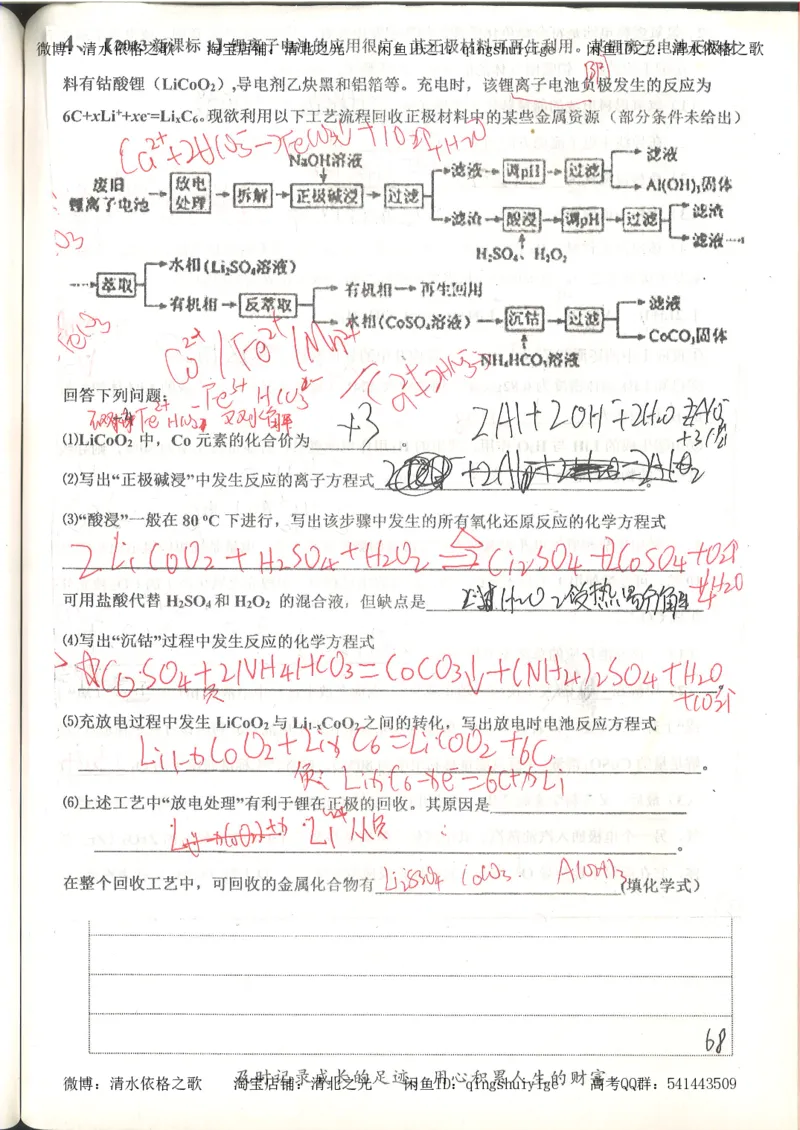 4、【2013 新课标 1】锂离子电池的应用很广，其正极材料可再生利用。某锂离子电池正极材
微博：清水依格之歌 淘宝店铺：清北之光 闲鱼ID：qingshuiyige 闲鱼ID2：清水依格之歌
料有钴酸锂（LiCoO₂）,导电剂乙炔黑和铝箔等。充电时，该锂离子电池负极发生的反应为
阴
6C+xLi⁺+xe⁻=LiₓC₆。现欲利用以下工艺流程回收正极材料中的某些金属资源（部分条件未给出）
NaOH溶液
废旧锂离子电池 放电处理 拆解 正极碱浸 过滤
滤液 调pH 过滤 滤液
Al(OH)₃固体
滤渣 酸浸 调pH 过滤 滤渣
滤液
H₂SO₄、H₂O₂
萃取 水相(Li₂SO₄溶液)
有机相 反萃取 有机相 再生回用
水相(CoSO₄溶液) 沉钴 过滤 滤液
CoCO₃固体
NH₄HCO₃溶液
Co²⁺ Fe²⁺ Mn²⁺
Fe³⁺ HCO₃⁻
回答下列问题：
⑴LiCoO₂ 中，Co 元素的化合价为 +3 。
2Al+2OH⁻+2H₂O
⑵写出“正极碱浸”中发生反应的离子方程式
⑶“酸浸”一般在 80 ⁰C 下进行，写出该步骤中发生的所有氧化还原反应的化学方程式
2LiCoO₂+H₂SO₄+H₂O₂ △ Li₂SO₄+2CoSO₄+O₂↑
+4H₂O
可用盐酸代替 H₂SO₄ 和 H₂O₂ 的混合液，但缺点是 H₂O₂受热易分解
⑷写出“沉钴”过程中发生反应的化学方程式
CoSO₄+2NH₄HCO₃=CoCO₃↓+(NH₄)₂SO₄+H₂O
+CO₂↑
⑸充放电过程中发生 LiCoO₂ 与 Li₁₋ₓCoO₂ 之间的转化，写出放电时电池反应方程式
Li₁₋ₓCoO₂+LiₓC₆=LiCoO₂+6C 。
负：LiₓC₆-xe⁻=6C+xLi
⑹上述工艺中“放电处理”有利于锂在正极的回收。其原因是
Li⁺从负 。
在整个回收工艺中，可回收的金属化合物有 Li₂SO₄ CoCO₃ Al(OH)₃ (填化学式）
68
及时记录成长的足迹，用心积累人生的财富
微博：清水依格之歌 淘宝店铺：清北之光 闲鱼ID：qingshuiyige 高考QQ群：541443509